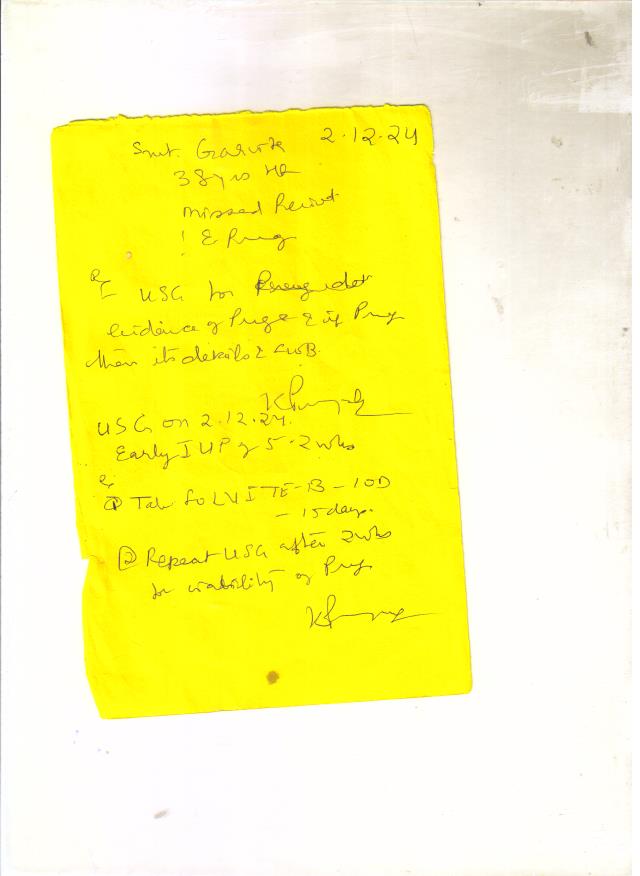 Smt. Garvita 2.12.24
38 yrs
missed Period
! E Preg
Rx
USG for
evidence of Preg & if Preg
then its details & FWB.
USG on 2.12.24.
Early IUP of 5.2 wks
Rx
① Tab FOLVITE-B - 1OD
- 15 days.
② Repeat USG after 2wks
for viability of Preg.